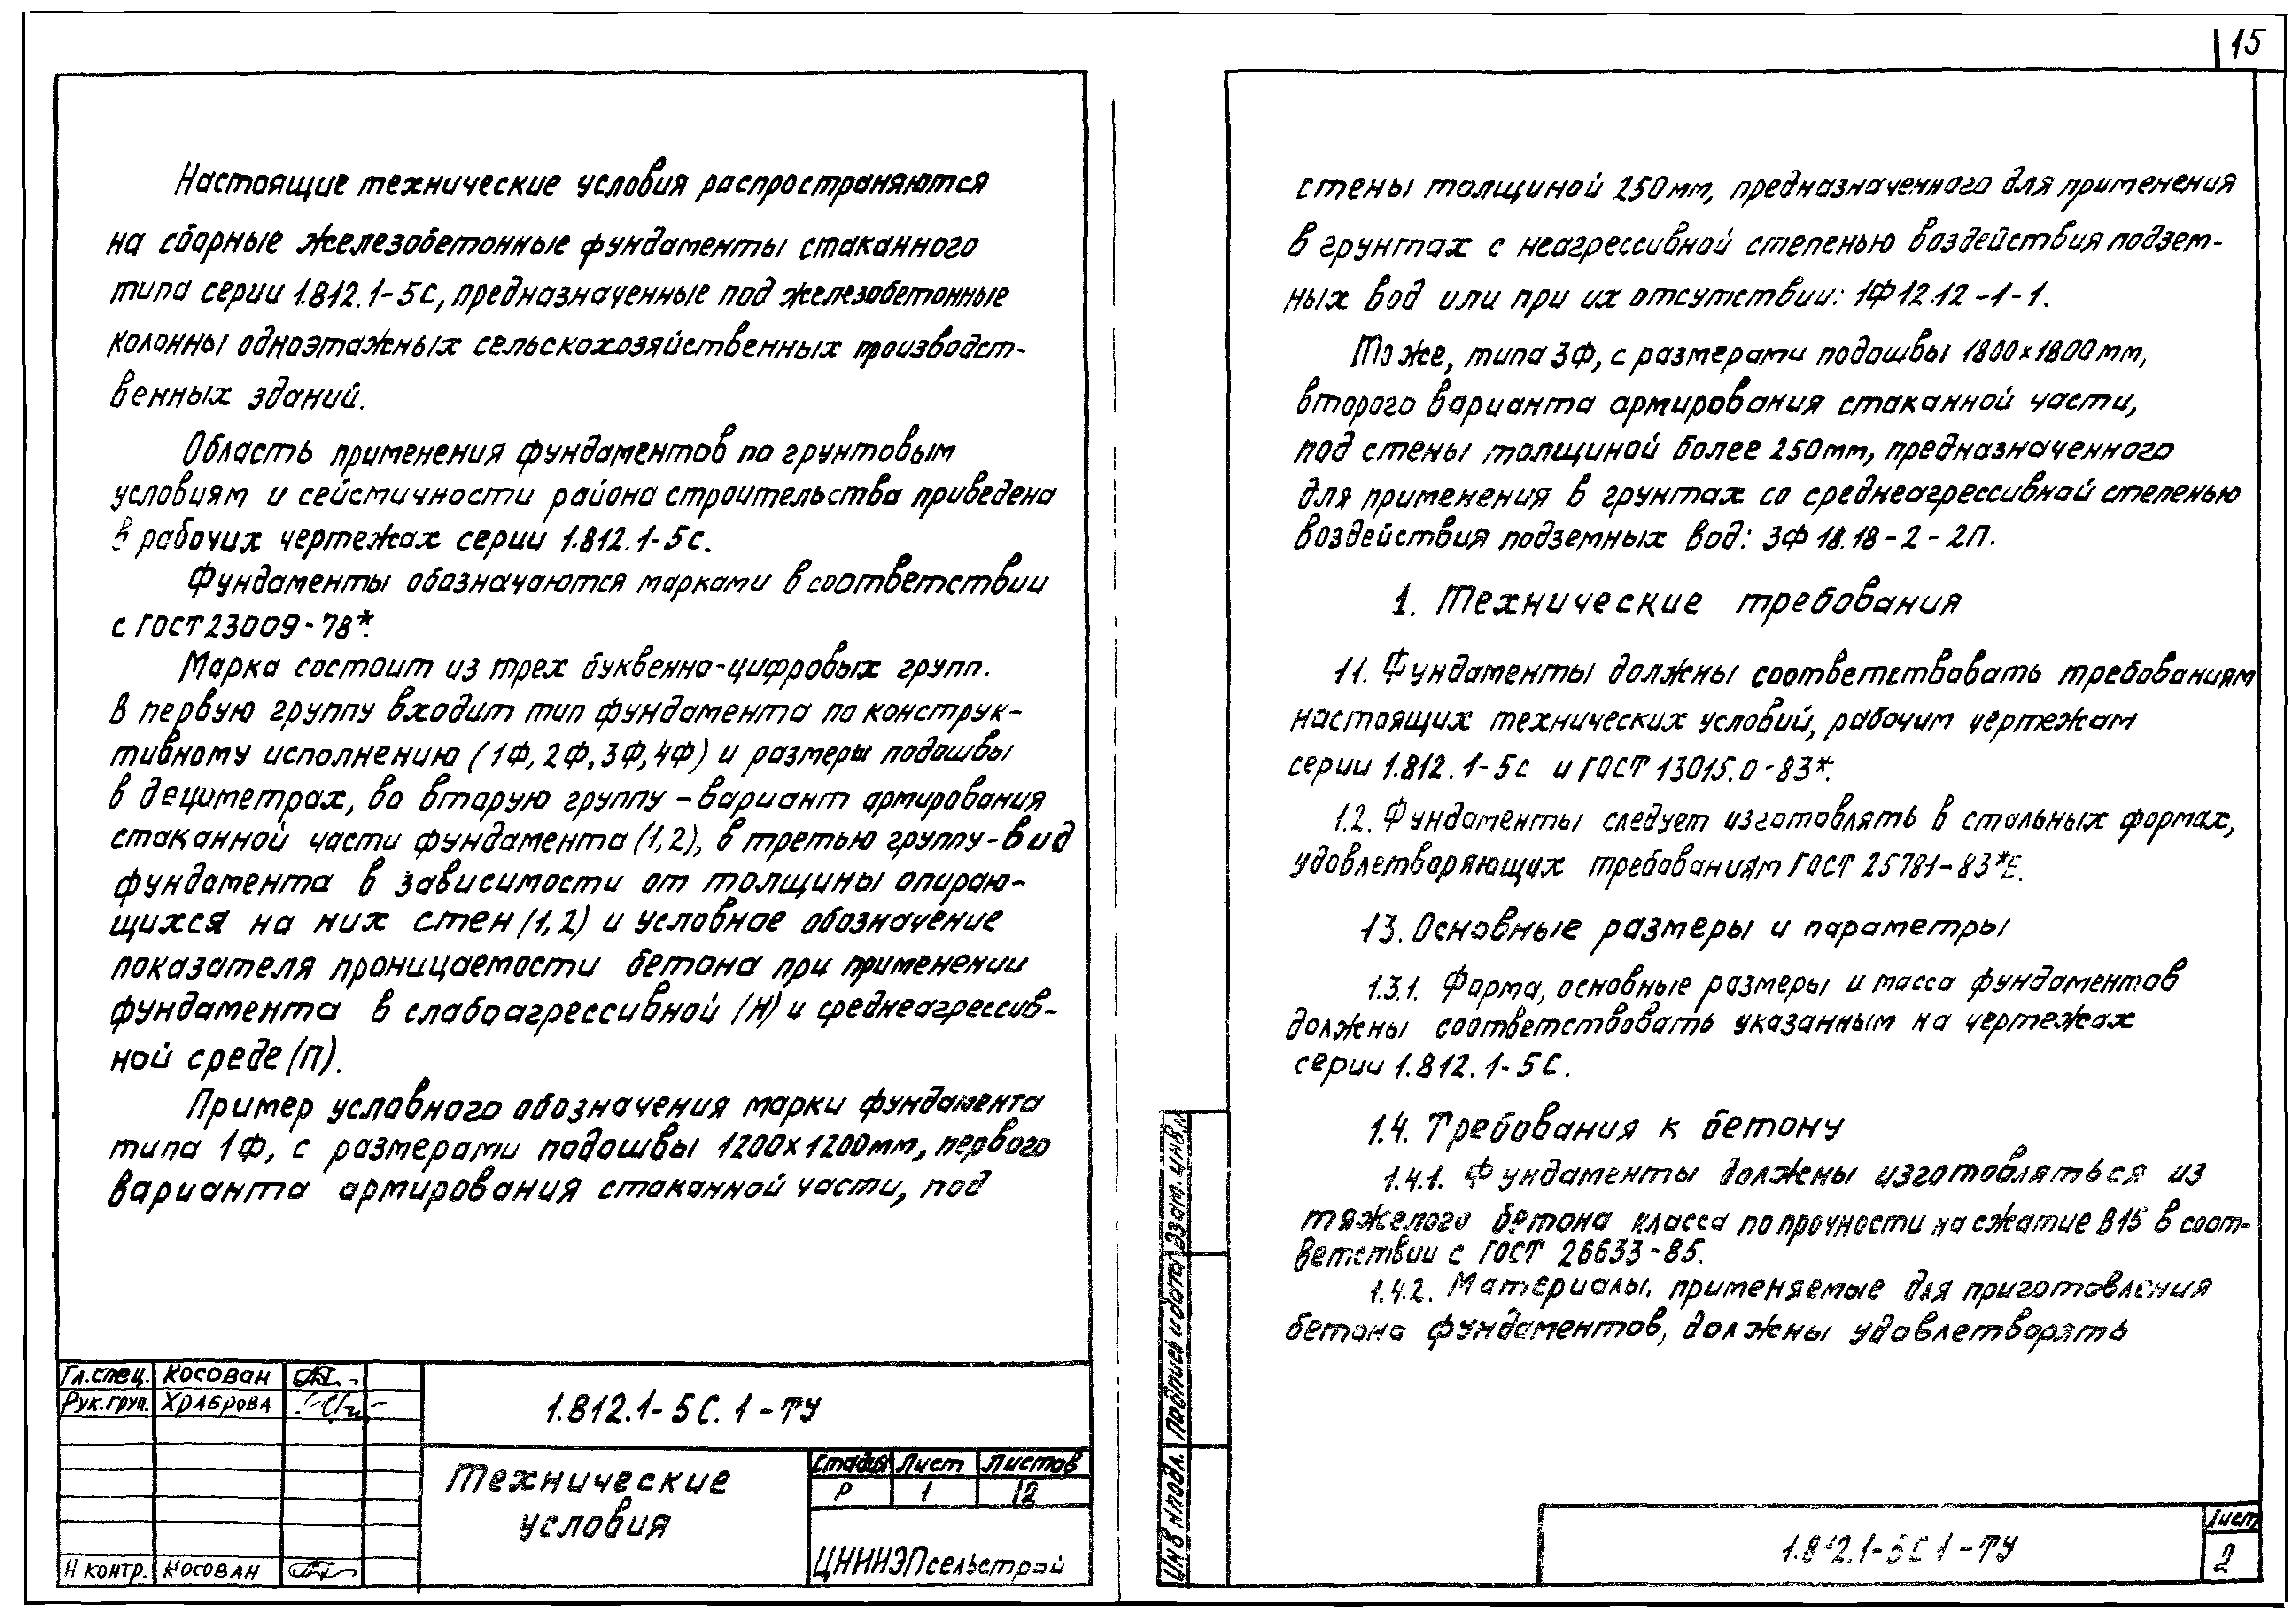 15
Настоящие технические условия распространяются
на сборные железобетонные фундаменты стаканного
типа серии 1.812.1-5с, предназначенные под железобетонные
колонны одноэтажных сельскохозяйственных производст-
венных зданий.
Область применения фундаментов по грунтовым
условиям и сейсмичности района строительства приведена
в рабочих чертежах серии 1.812.1-5с.
Фундаменты обозначаются марками в соответствии
с ГОСТ 23009-78*.
Марка состоит из трех буквенно-цифровых групп.
В первую группу входит тип фундамента по конструк-
тивному исполнению (1Ф, 2Ф, 3Ф, 4Ф) и размеры подошвы
в дециметрах, во вторую группу - вариант армирования
стаканной части фундамента (1,2), в третью группу - вид
фундамента в зависимости от толщины опираю-
щихся на них стен (1,2) и условное обозначение
показателя проницаемости бетона при применении
фундамента в слабоагрессивной (Н) и среднеагрессив-
ной среде (П).
Пример условного обозначения марки фундамента
типа 1Ф, с размерами подошвы 1200х1200мм, первого
варианта армирования стаканной части, под
Гл.спец. Косован
Рук.груп. Храброва
Н контр. Косован
1.812.1-5С.1-ТУ
Технические
условия
Стадия Лист Листов
Р 1 12
ЦНИИЭПсельстрой
стены толщиной 250мм, предназначенного для применения
в грунтах с неагрессивной степенью воздействия подзем-
ных вод или при их отсутствии: 1Ф12.12-1-1.
То же, типа 3Ф, с размерами подошвы 1800х1800мм,
второго варианта армирования стаканной части,
под стены толщиной более 250мм, предназначенного
для применения в грунтах со среднеагрессивной степенью
воздействия подземных вод: 3Ф 18.18-2-2П.
1. Технические требования
1.1. Фундаменты должны соответствовать требованиям
настоящих технических условий, рабочим чертежам
серии 1.812.1-5с и ГОСТ 13015.0-83*.
1.2. Фундаменты следует изготовлять в стальных формах,
удовлетворяющих требованиям ГОСТ 25781-83*Е.
1.3. Основные размеры и параметры
1.3.1. Форма, основные размеры и масса фундаментов
должны соответствовать указанным на чертежах
серии 1.812.1-5С.
1.4. Требования к бетону
1.4.1. Фундаменты должны изготовляться из
тяжелого бетона класса по прочности на сжатие В15 в соот-
ветствии с ГОСТ 26633-85.
1.4.2. Материалы, применяемые для приготовления
бетона фундаментов, должны удовлетворять
Инв N подл. Подпись и дата Взам. инв. N
1.812.1-5С 1-ТУ
Лист
2